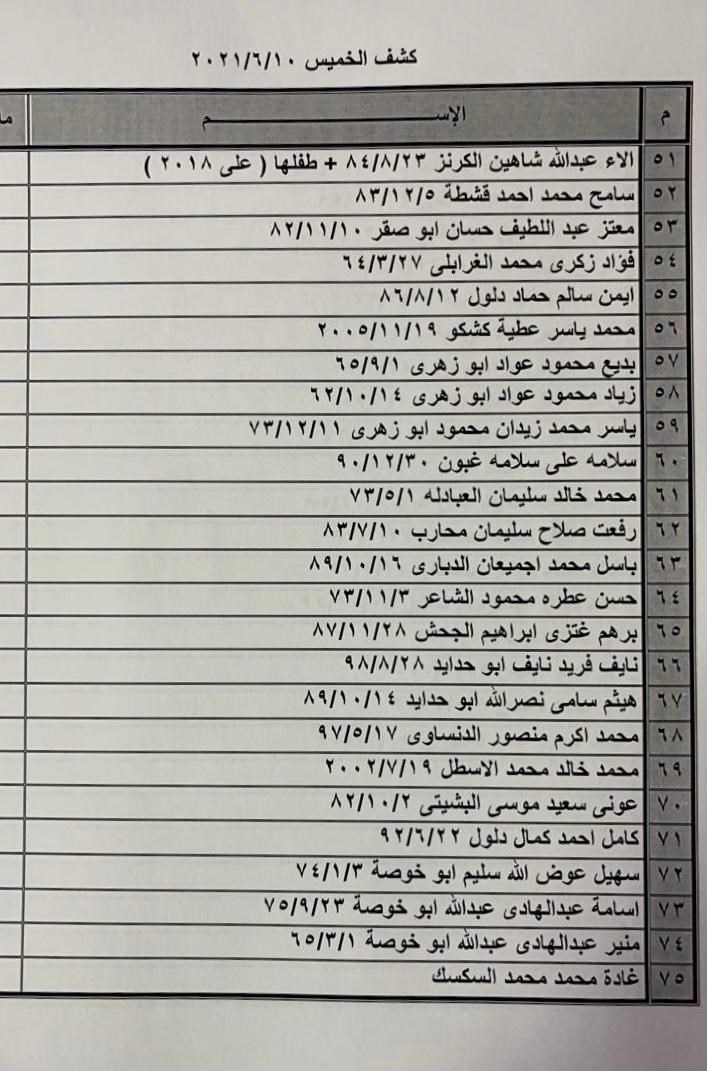 كشف الخميس ٢٠٢١/٦/١٠
م الإســـــــم
٥١ الاء عبدالله شاهين الكرنز ٨٤/٨/٢٣ + طفلها ( على ٢٠١٨ )
٥٢ سامح محمد احمد قشطة ٨٣/١٢/٥
٥٣ معتز عبد اللطيف حسان ابو صقر ٨٢/١١/١٠
٥٤ فؤاد زكرى محمد الغرابلى ٦٤/٣/٢٧
٥٥ ايمن سالم حماد دلول ٨٦/٨/١٢
٥٦ محمد ياسر عطية كشكو ٢٠٠٥/١١/١٩
٥٧ بديع محمود عواد ابو زهرى ٦٥/٩/١
٥٨ زياد محمود عواد ابو زهرى ٦٢/١٠/١٤
٥٩ ياسر محمد زيدان محمود ابو زهرى ٧٣/١٢/١١
٦٠ سلامه على سلامه غبون ٩٠/١٢/٣٠
٦١ محمد خالد سليمان العبادله ٧٣/٥/١
٦٢ رفعت صلاح سليمان محارب ٨٣/٧/١٠
٦٣ باسل محمد اجميعان الدبارى ٨٩/١٠/١٦
٦٤ حسن عطره محمود الشاعر ٧٣/١١/٣
٦٥ برهم غتزى ابراهيم الجحش ٨٧/١١/٢٨
٦٦ نايف فريد نايف ابو حدايد ٩٨/٨/٢٨
٦٧ هيثم سامى نصرالله ابو حدايد ٨٩/١٠/١٤
٦٨ محمد اكرم منصور الدنساوى ٩٧/٥/١٧
٦٩ محمد خالد محمد الاسطل ٢٠٠٢/٧/١٩
٧٠ عونى سعيد موسى البشيتى ٨٢/١٠/٢
٧١ كامل احمد كمال دلول ٩٢/٦/٢٢
٧٢ سهيل عوض الله سليم ابو خوصة ٧٤/١/٣
٧٣ اسامة عبدالهادى عبدالله ابو خوصة ٧٥/٩/٢٣
٧٤ منير عبدالهادى عبدالله ابو خوصة ٦٥/٣/١
٧٥ غادة محمد محمد السكسك